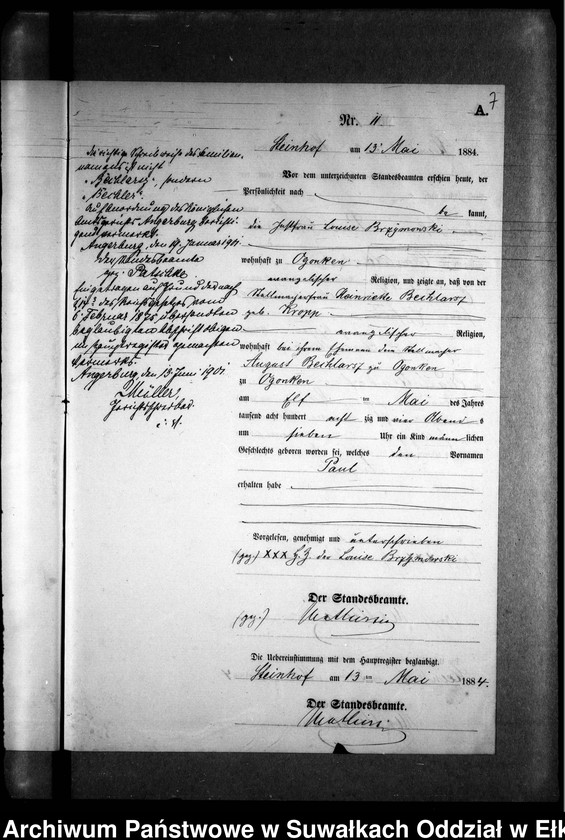 7
A.
Nr. 11
Steinhof am 13 Mai 1884.
Vor dem unterzeichneten Standesbeamten erschien heute, der
Persönlichkeit nach
be kannt,
die Instfrau Louise
wohnhaft zu Ogonken
evangelischer Religion, und zeigte an, daß von der
Stellmacherfrau Henriette Bechlarz
geb. Kropp
evangelischer Religion,
wohnhaft bei ihrem Ehemann dem Stellmacher
August Bechlarz zu Ogonken
zu Ogonken
am Elf ten Mai des Jahres
tausend acht hundert acht zig und vier Abends
um sieben Uhr ein Kind männ lichen
Geschlechts geboren worden sei, welches den Vornamen
Paul
erhalten habe
Vorgelesen, genehmigt und unterschrieben
(gez.) XXX H.Z. der Louise
Der Standesbeamte.
(gez.)
Die Uebereinstimmung mit dem Hauptregister beglaubigt.
Steinhof am 13 ten Mai 1884.
Der Standesbeamte.
Die richtige Schreibweise des Familien-
namens ist nicht
"Bechlarz", sondern
"Bechler".
Auf Anordnung des Königlichen
Amtsgerichts Angerburg berichti-
gend vermerkt.
Angerburg, den 19. Januar 1901
Der Standesbeamte
gez.
Eingetragen auf Grund der nach
des Reichsgesetzes vom
6. Februar 1875 übersandten
beglaubigten Abschrift des
im Hauptregister gemachten
Vermerks.
Angerburg, den 13. Juni 1901
Müller,
Gerichtsschreiber
Archiwum Państwowe w Suwałkach Oddział w Ełk